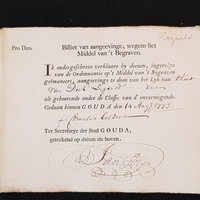 Legueld
Pro Deo. Billiet van aangeevinge, wegens het
Middel van 't Begraven.
Ik ondergeschreve verklaare by deezen, ingevolge
van de Ordonnantie op 't Middel van 't Begraven
geëmaneert, aangevinge te doen van het Lyk van
van Dirk
als gehoorende onder de Classis van d' onvermogende.
Gedaan binnen GOUDA, den 14 Aug 1773
Ter Secretarye der Stad GOUDA,
geteekend op datum als boven.